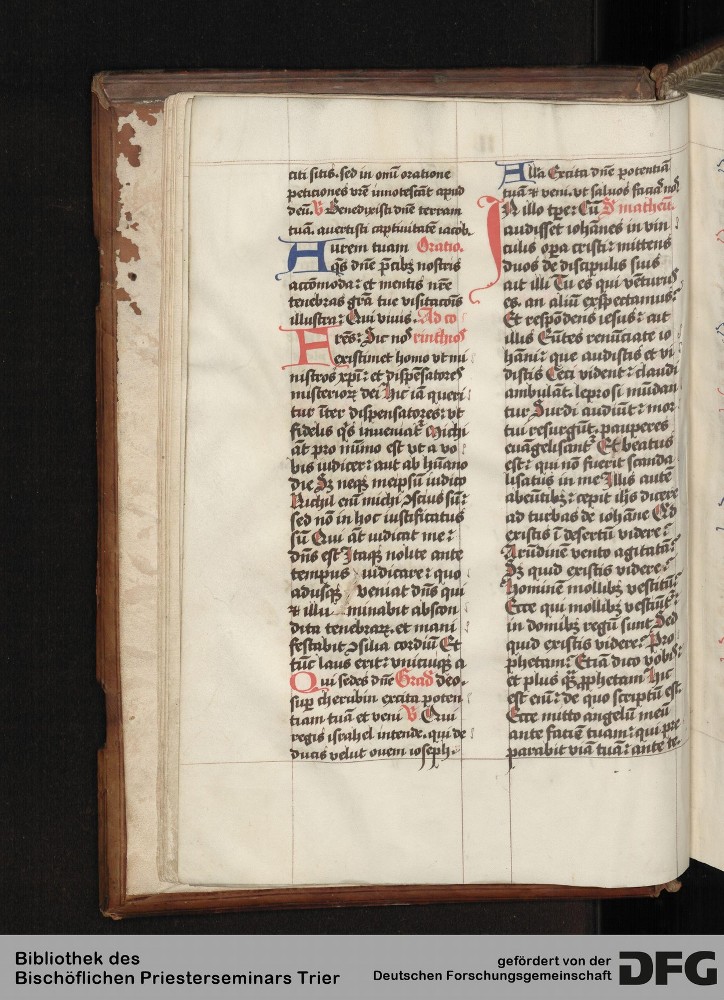 citi sitis. sed in omī oratione
peticiones vr̄e innotescāt apud
deū. V Benedixisti dn̄e terram
tuā. auertisti captiuitatē iacob.
Aurem tuam Oratio.
q̄s dn̄e p̄cibꝫ nostris
accōmoda: et mentis nr̄e
tenebras grā tue visitacōis
illustra: Qui viuis. Ad co
Fres: Sic nos rinthios
existimet homo vt mi
nistros xp̄i: et dispēsatores
misterioꝝ dei Hic iā queri
tur īter dispensatores: vt
fidelis q̄s inueniat᷑ Michi
āt pro mīmo est vt a vo
bis iudicer: aut ab hūano
die Sꝫ neqꝫ meipsū iudico
Nichil enī michi ꝯscius sū:
sed nō in hoc iustificatus
sū Qui āt iudicat me:
dn̄s est Itaqꝫ nolite ante
tempus iudicare: quo
adusqꝫ veniat dn̄s qui
⁊ illu minabit abscon
dita tenebraꝝ. et mani
festabit ꝯsilia cordiū Et
tūc laus erit: vnicuiqꝫ a
Qui sedes dn̄e Grad deo.
suꝑ cherubin excita poten
tiam tuā et veni V Qui
regis israhel intende. qui de
ducis velut ouem ioseph.
Alla Excita dn̄e potentiā
tuā ⁊ veni. vt saluos faciās nos
IN illo tp̄e: Cū S matheū.
audisset iohānes in vin
culis oꝑa cristi: mittens
duos de discipulis suis
ait illi Tu es qui vēturus
es. an aliū exspectamus:
Et respōdens iesus: ait
illis Eūtes renūciate io
hāni: que audistis et vi
distis Ceci vident: claudi
ambulāt. leprosi mūdan
tur Surdi audiūt: mor
tui resurgūt. pauperes
euāgelisant᷑ Et beatus
est: qui nō fuerit scanda
lisatus in me Illis autē
abeūtibꝫ: cepit ihs dicere
ad turbas de iohāne Qd
existis ī desertū videre:
Arūdinē vento agitatā:
Sꝫ quid existis videre:
Hominē mollibꝫ vestitū:
Ecce qui mollibꝫ vestiūt᷑:
in domibꝫ regū sunt Sed
quid existis videre: Pro
phetam: Etiā dico vobis:
et plus qꝫ ꝓphetam Hic
est enī: de quo scriptū est.
Ecce mitto angelū meū
ante faciē tuam: qui pre
parabit viā tuā: ante te.
Bibliothek des
Bischöflichen Priesterseminars Trier
gefördert von der
Deutschen Forschungsgemeinschaft
DFG